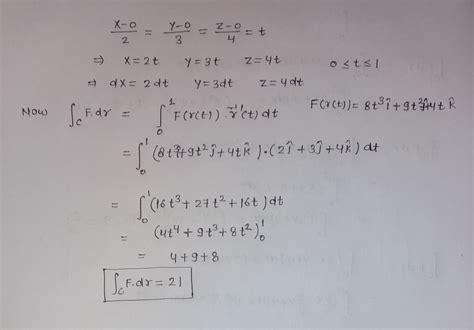 x-0/2 = y-0/3 = z-0/4 = t
⇒ x=2t y=3t z=4t 0≤t≤1
⇒ dx=2dt y=3dt z=4dt
Now ∫_C F.dr = ∫_0^1 F(r(t)).r'(t)dt F(r(t))=8t³î+9t²ĵ+4t k̂
= ∫_0^1 (8t³î+9t²ĵ+4t k̂).(2î+3ĵ+4k̂)dt
= ∫_0^1 (16t³+27t²+16t)dt
= (4t⁴+9t³+8t²)_0^1
= 4+9+8
∫_C F.dr = 21